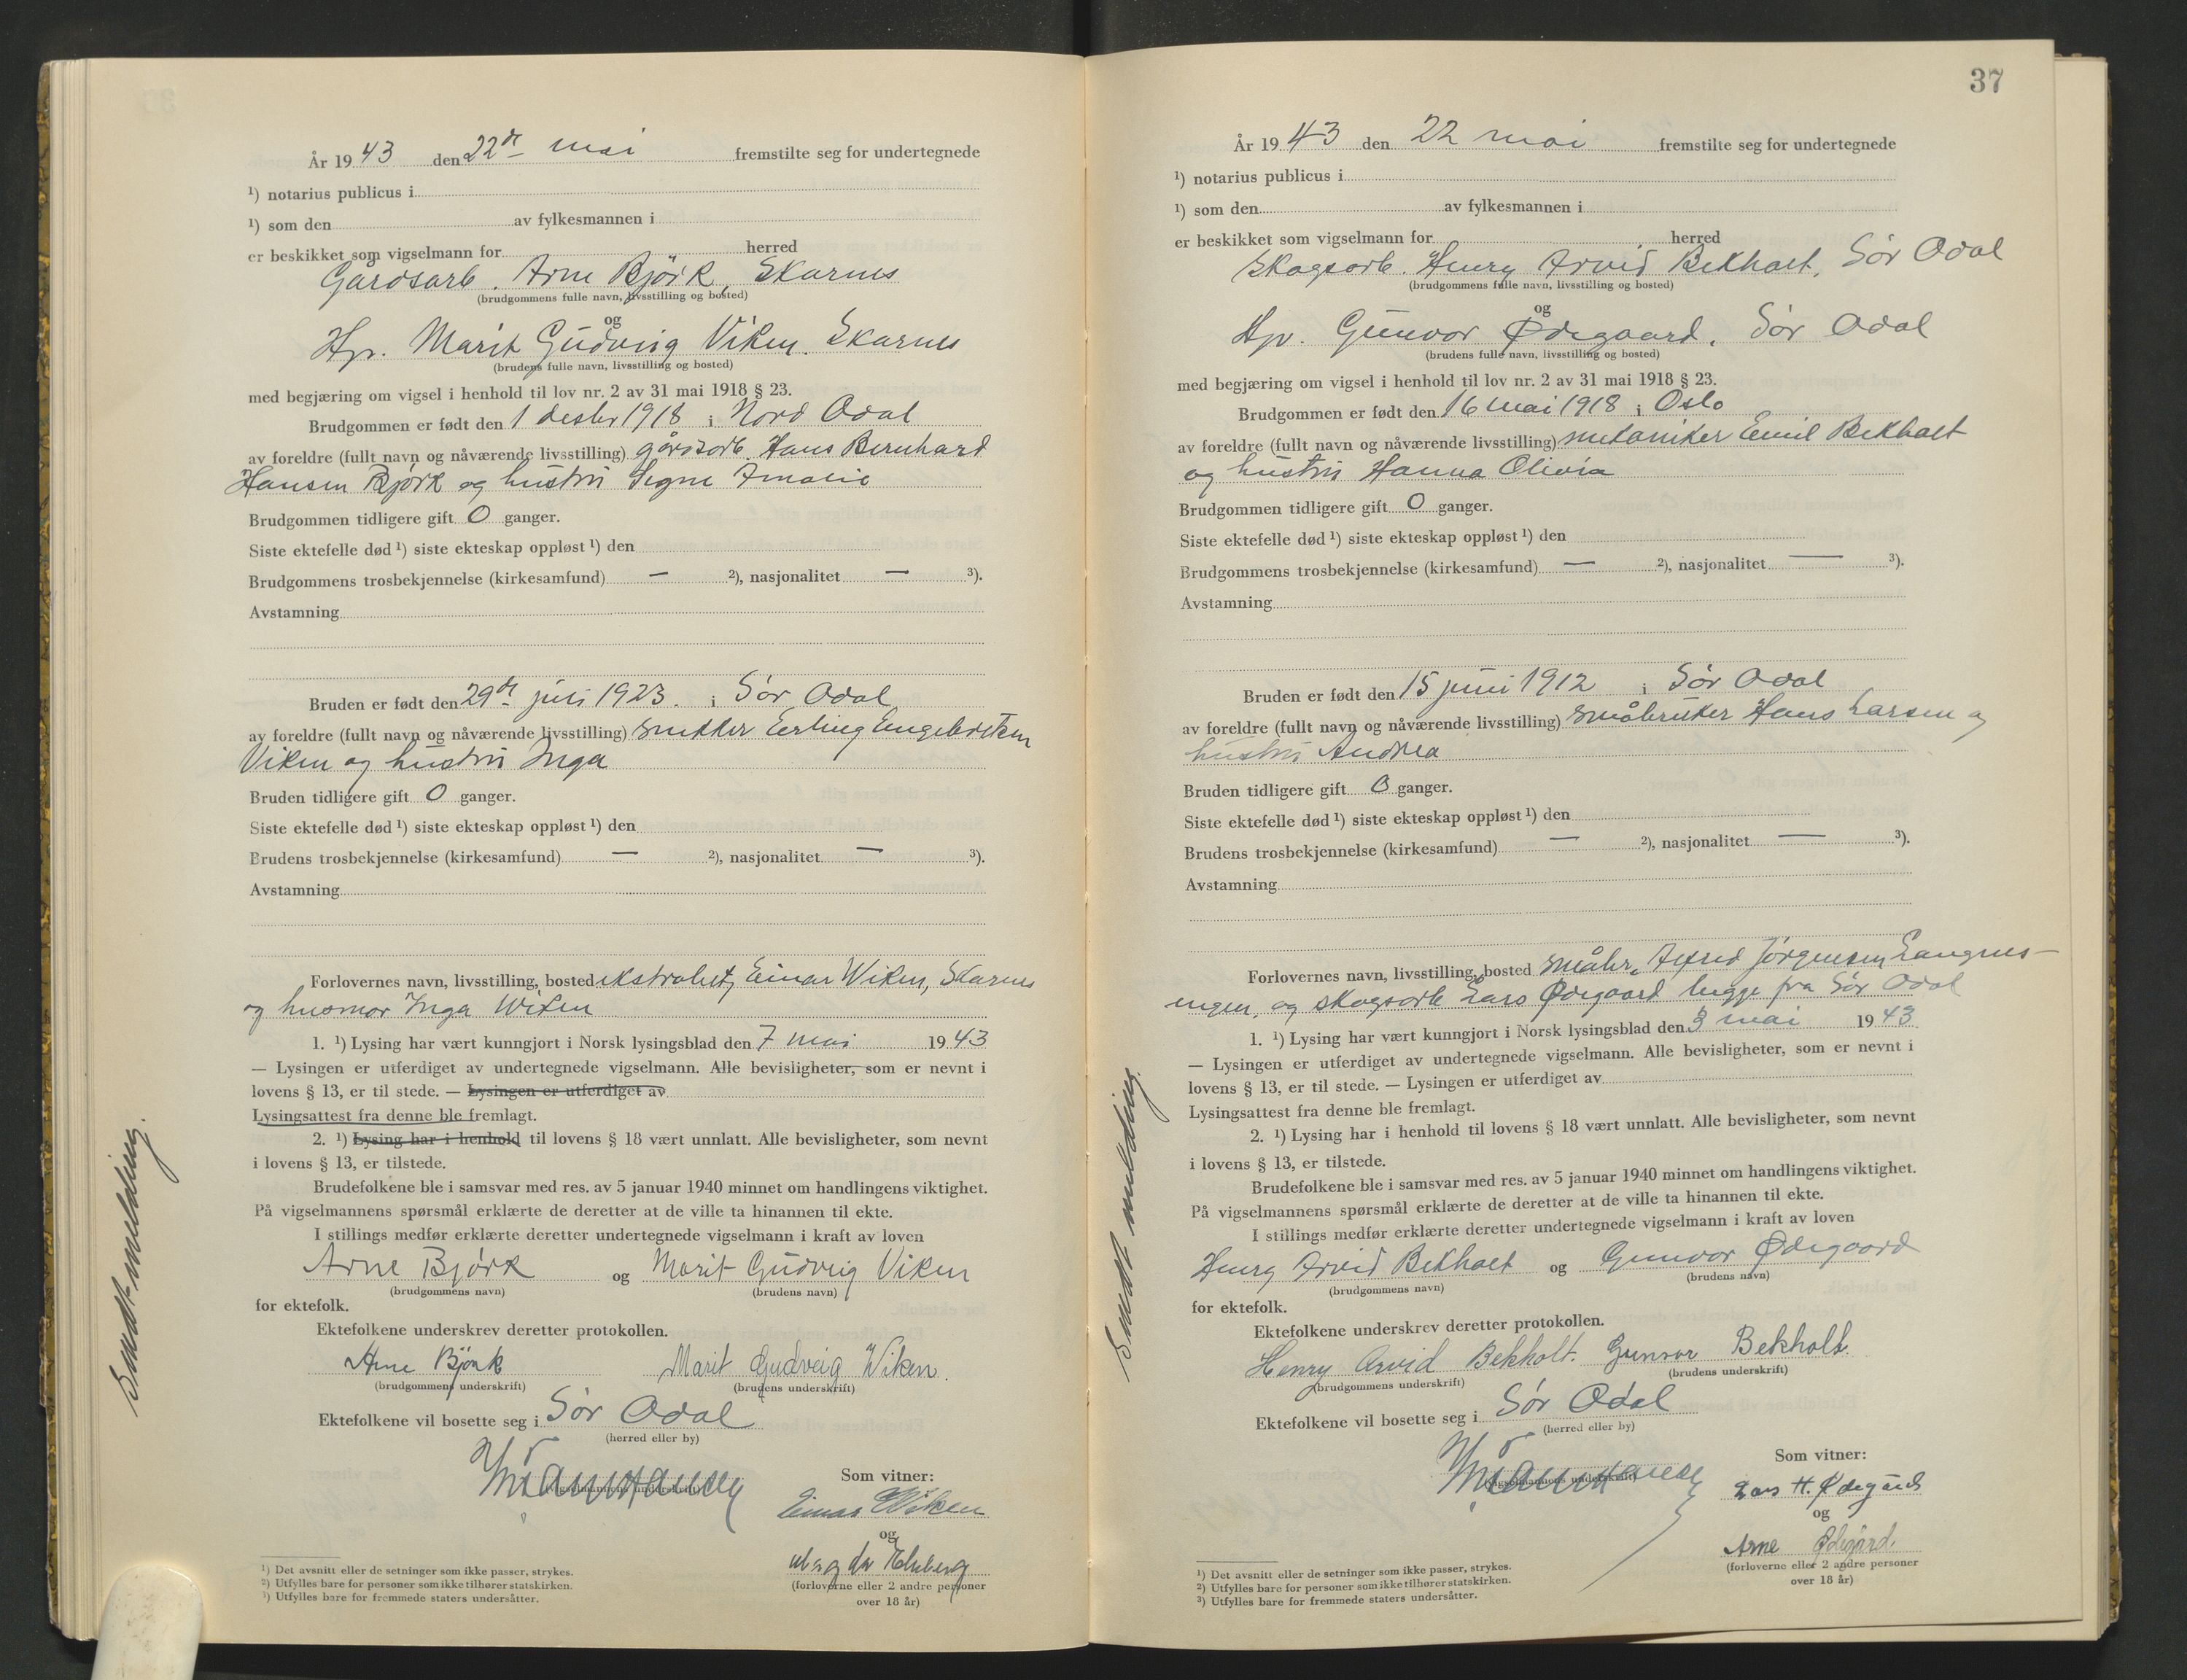 År 19 43 den 22de mai fremstilte seg for undertegnede
¹) notarius publicus i
¹) som den av fylkesmannen i
er beskikket som vigselmann for herred
Gårdsarb. Arne Björk, Skarnes
(brudgommens fulle navn, livsstilling og bosted)
og
Hp. Marit Gudveig Viken. Skarnes
(brudens fulle navn, livsstilling og bosted)
med begjæring om vigsel i henhold til lov nr. 2 av 31 mai 1918 § 23.
Brudgommen er født den 1 desbr 1918 i Nord Odal
av foreldre (fullt navn og nåværende livsstilling) gårdsarb. Hans Bernhard
Hansen Björk og hustru Signe Amalie
Brudgommen tidligere gift 0 ganger.
Siste ektefelle død ¹) siste ekteskap oppløst ¹) den
Brudgommens trosbekjennelse (kirkesamfund) — ²), nasjonalitet — ³).
Avstamning
Bruden er født den 29de juli 1923. i Sör Odal
av foreldre (fullt navn og nåværende livsstilling) snekker Erling Engebretsen
Viken og hustru Inga
Bruden tidligere gift 0 ganger.
Siste ektefelle død ¹) siste ekteskap oppløst ¹) den
Brudens trosbekjennelse (kirkesamfund) — ²), nasjonalitet — ³).
Avstamning
Forlovernes navn, livsstilling, bosted ekstrabet, Einar Wiken, Skarnes
og husmor Inga Wiken
1. ¹) Lysing har vært kunngjort i Norsk lysingsblad den 7 mai 19 43
— Lysingen er utferdiget av undertegnede vigselmann. Alle bevisligheter, som er nevnt i
lovens § 13, er til stede. — Lysingen er utferdiget av
Lysingsattest fra denne ble fremlagt.
2. ¹) Lysing har i henhold til lovens § 18 vært unnlatt. Alle bevisligheter, som nevnt
i lovens § 13, er tilstede.
Brudefolkene ble i samsvar med res. av 5 januar 1940 minnet om handlingens viktighet.
På vigselmannens spørsmål erklærte de deretter at de ville ta hinannen til ekte.
I stillings medfør erklærte deretter undertegnede vigselmann i kraft av loven
Arne Björk og Marit Gudveig Viken
(brudgommens navn) (brudens navn)
for ektefolk.
Ektefolkene underskrev deretter protokollen.
Arne Björk Marit Gudveig Wiken.
(brudgommens underskrift) (brudens underskrift)
Ektefolkene vil bosette seg i Sör Odal
(herred eller by)
Som vitner:
(vigselmannens underskrift)
Einar Wiken
og
Magda
(forloverne eller 2 andre personer
over 18 år)
¹) Det avsnitt eller de setninger som ikke passer, strykes.
²) Utfylles bare for personer som ikke tilhører statskirken.
³) Utfylles bare for fremmede staters undersåtter.
Sendt melding.
37
År 19 43 den 22 mai fremstilte seg for undertegnede
¹) notarius publicus i
¹) som den av fylkesmannen i
er beskikket som vigselmann for herred
Skogsarb. Henry Arvid Bekholt, Sör Odal
(brudgommens fulle navn, livsstilling og bosted)
og
Hp. Gunvor Ødegaard, Sör Odal
(brudens fulle navn, livsstilling og bosted)
med begjæring om vigsel i henhold til lov nr. 2 av 31 mai 1918 § 23.
Brudgommen er født den 16 mai 1918 i Oslo
av foreldre (fullt navn og nåværende livsstilling) mekaniker Emil Bekholt
og hustru Hanna Olivia
Brudgommen tidligere gift 0 ganger.
Siste ektefelle død ¹) siste ekteskap oppløst ¹) den
Brudgommens trosbekjennelse (kirkesamfund) — ²), nasjonalitet — ³).
Avstamning
Bruden er født den 15 juni 1912 i Sör Odal
av foreldre (fullt navn og nåværende livsstilling) småbruker Hans Larsen og
hustru Andrea
Bruden tidligere gift 0 ganger.
Siste ektefelle død ¹) siste ekteskap oppløst ¹) den
Brudens trosbekjennelse (kirkesamfund) — ²), nasjonalitet — ³).
Avstamning
Forlovernes navn, livsstilling, bosted småbr. Alfred Jörgensen, Langnes-
engen, og skogsarb Lars Ødegaard begge fra Sör Odal
1. ¹) Lysing har vært kunngjort i Norsk lysingsblad den 3 mai 19 43
— Lysingen er utferdiget av undertegnede vigselmann. Alle bevisligheter, som er nevnt i
lovens § 13, er til stede. — Lysingen er utferdiget av
Lysingsattest fra denne ble fremlagt.
2. ¹) Lysing har i henhold til lovens § 18 vært unnlatt. Alle bevisligheter, som nevnt
i lovens § 13, er tilstede.
Brudefolkene ble i samsvar med res. av 5 januar 1940 minnet om handlingens viktighet.
På vigselmannens spørsmål erklærte de deretter at de ville ta hinannen til ekte.
I stillings medfør erklærte deretter undertegnede vigselmann i kraft av loven
Henry Arvid Bekholt og Gunvor Ødegaard
(brudgommens navn) (brudens navn)
for ektefolk.
Ektefolkene underskrev deretter protokollen.
Henry Arvid Bekholt. Gunvor Bekholt.
(brudgommens underskrift) (brudens underskrift)
Ektefolkene vil bosette seg i Sör Odal
(herred eller by)
Som vitner:
(vigselmannens underskrift)
Lars H. Ødegård
og
Arne Ødegård.
(forloverne eller 2 andre personer
over 18 år)
¹) Det avsnitt eller de setninger som ikke passer, strykes.
²) Utfylles bare for personer som ikke tilhører statskirken.
³) Utfylles bare for fremmede staters undersåtter.
Sendt melding.